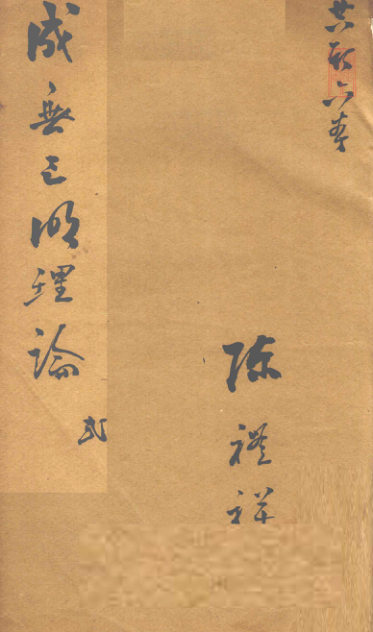 共六本
陳禮祥
成無己明理論
弍